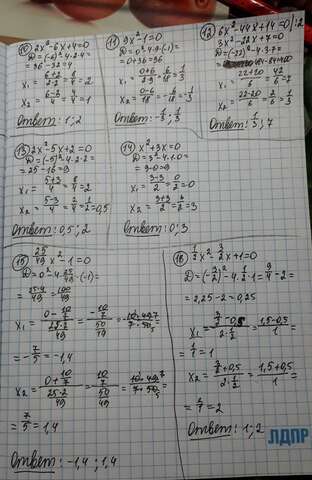 10) 2x²-6x+4=0
D=(-6)²-4·2·4=
=36-32=4
x₁=(6+2)/(2·2)=8/4=2
x₂=(6-2)/4=4/4=1
Ответ: 1; 2
11) 9x²-1=0
D=0²-4·9·(-1)=
=0+36=36
x₁=(0+6)/(2·9)=6/18=1/3
x₂=(0-6)/18=-6/18=-1/3
Ответ: -1/3; 1/3
12) 6x²-44x+14=0 |:2
3x²-22x+7=0
D=(-22)²-4·3·7=
484-84=400
x₁=(22+20)/6=42/6=7
x₂=(22-20)/6=2/6=1/3
Ответ: 1/3; 7
13) 2x²-5x+2=0
D=(-5)²-4·2·2=
=25-16=9
x₁=(5+3)/4=8/4=2
x₂=(5-3)/4=2/4=1/2=0,5
Ответ: 0,5; 2
14) x²+3x=0
D=3²-4·1·0=
=9-0=9
x₁=(3-3)/2=0/2=0
x₂=(3+3)/2=6/2=3
Ответ: 0; 3
15) 25/49x²-1=0
D=0²-4·25/49·(-1)=
=25·4/49=100/49
x₁=(0-10/7)/(25·2/49)=(-10/7)/(50/49)=-10·49/7·50=
=-7/5=-1,4
x₂=(0+10/7)/(25·2/49)=(10/7)/(50/49)=10·49/7·50=
=7/5=1,4
Ответ: -1,4; 1,4
16) 1/2x²-3/2x+1=0
D=(-3/2)²-4·1/2·1=9/4-2=
=2,25-2=0,25
x₁=(3/2-0,5)/(2·1/2)=(1,5-0,5)/1=
=1/1=1
x₂=(3/2+0,5)/(2·1/2)=(1,5+0,5)/1=
=2/1=2
Ответ: 1; 2
ЛДПР